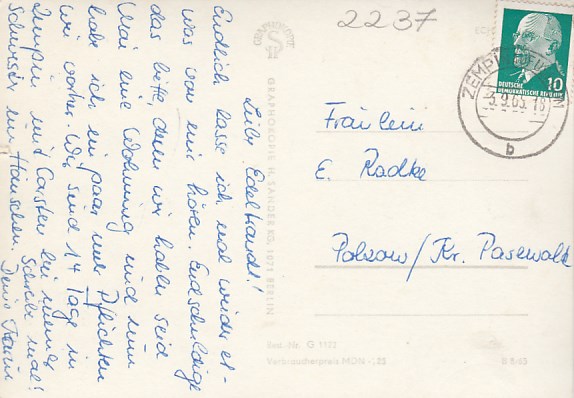 2237
Liebe Edeltraud!
Endlich lasse ich mal wieder et-
was von mir hören. Entschuldige
das bitte, denn wir haben seid
Mai eine Wohnung und nun
habe ich ein paar mehr Pflichten
wie vorher. Wir sind 14 Tage in
Zempin mit Carsten bei meiner
Schwester im Häuschen. Schreibe mal!
GRAPHOKOPIE
GRAPHOKOPIE H. SANDER KG, 1071 BERLIN
ECHT
DEUTSCHE
DEMOKRATISCHE REPUBLIK
10
ZEMPIN
3.9.65.18
b
Fräulein
E. Radke
Polzow/Kr. Pasewalk
Best.-Nr. G 1122
Verbraucherpreis MDN -,25